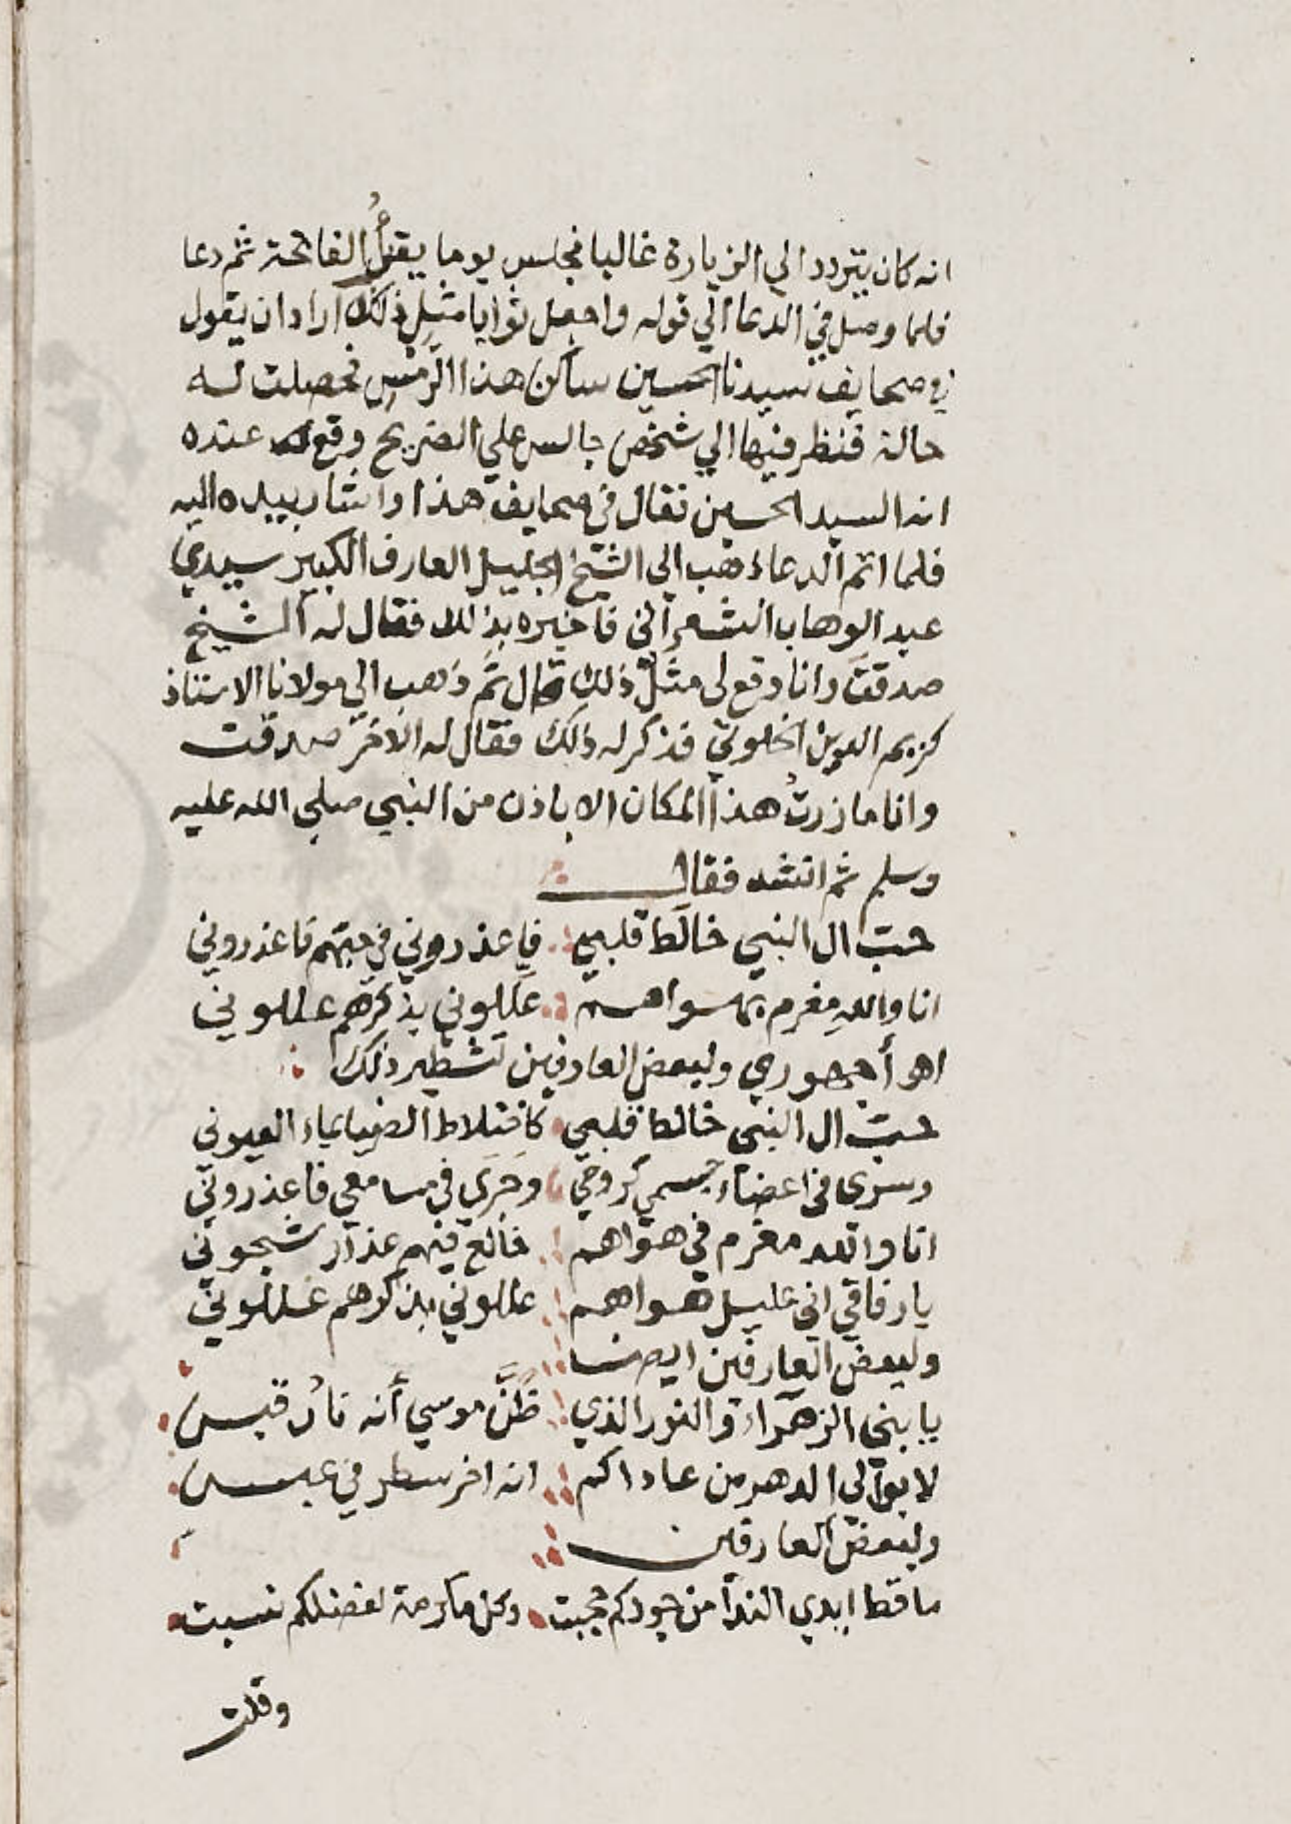 انه كان يتردد الي الزيارة غالبا فجلس يوما يقرأ الفاتحة ثم دعا
فلما وصل في الدعا الي قوله واجعل ثوابا مثل ذلك اراد ان يقول
في صحايف سيدنا الحسين ساكن هذا الرمس فحصلت له
حالة فنظر فيها الي شخص جالس علي الضريح وقع عنده
انه السيد الحسين فقال في صحايف هذا واشار بيده اليه
فلما اتم الدعاء ذهب الي الشيخ الجليل العارف الكبير سيدي
عبد الوهاب الشعراني فاخبره بذلك فقال له الشيخ
صدقت وانا وقع لي مثل ذلك قال ثم ذهب الي مولانا الاستاذ
كريم الدين الخلوتي فذكر له ذلك فقال له الاخر صدقت
وانا ما زرت هذا المكان الا باذن من النبي صلي الله عليه
وسلم ثم انشد فقال
حب ال النبي خالط قلبي فاعذروني في حبهم فاعذروني
انا والله مغرم بهواهم عللوني بذكرهم عللوني
اهو أجهوري ولبعض العارفين تشطير ذلك
حب ال النبي خالط قلبي كاختلاط الضيا بماء العيوني
وسرى في اعضاء جسمي كروحي وجرى في مسامعي فاعذروني
انا والله مغرم في هواهم فالع فيهم عذار شجوني
يا رفاقي اني عليل هواهم عللوني بذكرهم عللوني
ولبعض العارفين ايضا
يا بني الزهراء والنور الذي ظنَّ موسي أنه نارُ قبس
لا يوالي الدهر من عاداكم انه اخر سطر في عبس
ولبعض العارفين
ما قط ابدي الندا من جودكم حجبت وكل مكرمة لفضلكم نسبت
وقلت